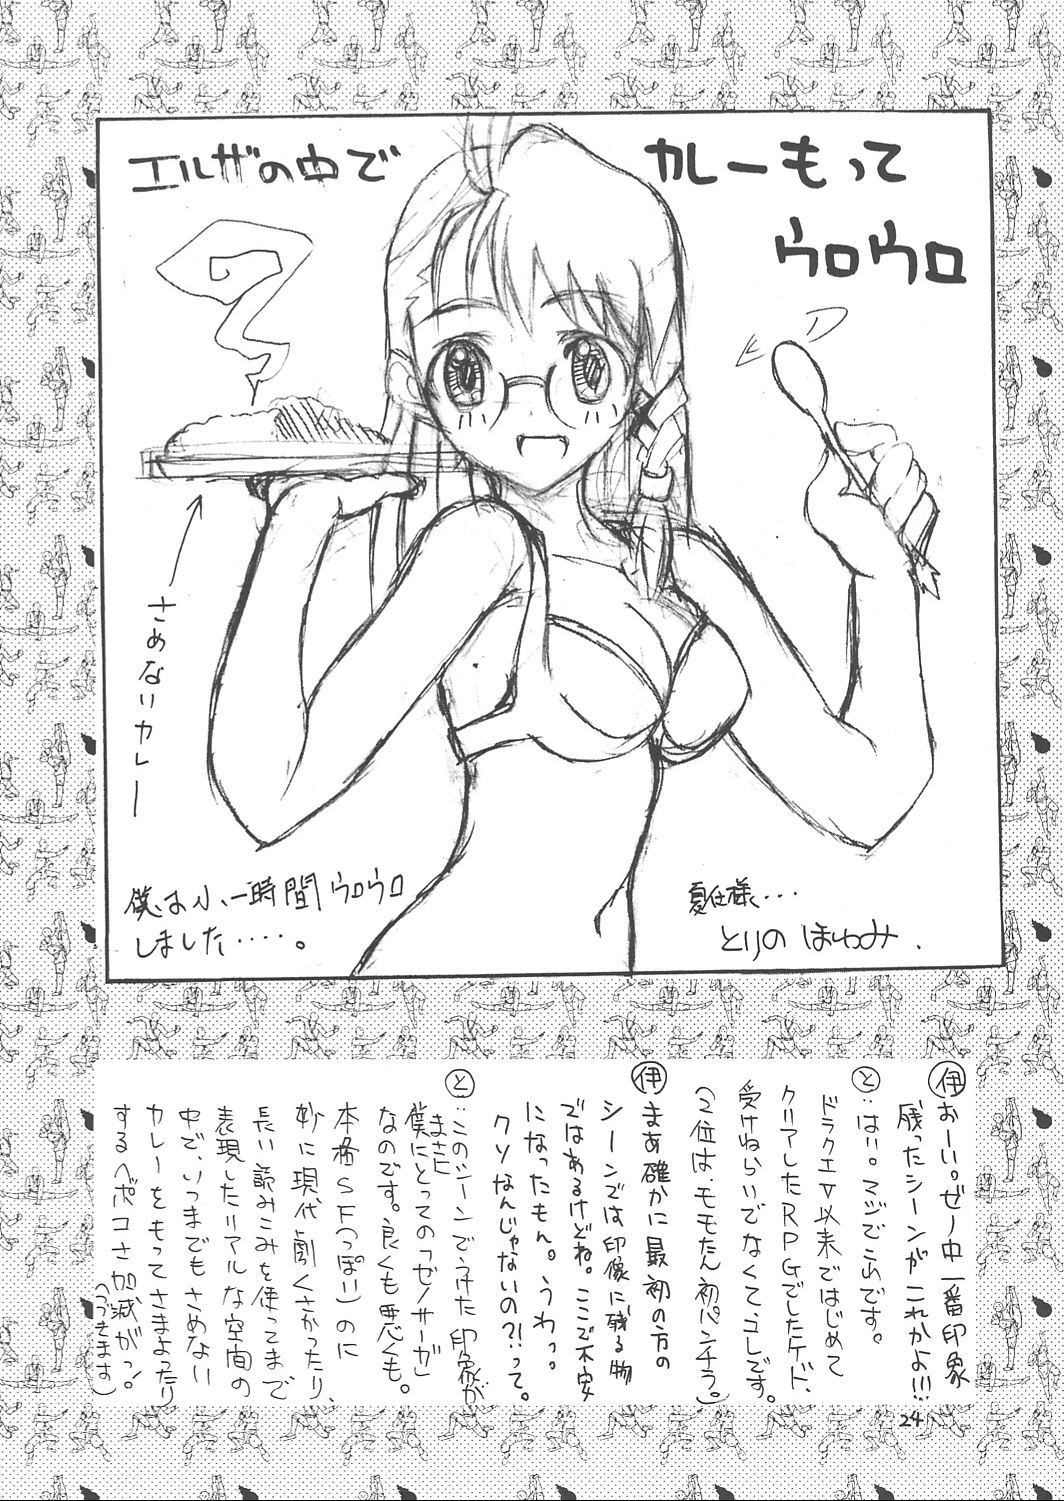 エルザの中で
カレーもって
ウロウロ
さめないカレー
僕は小一時間ウロウロ
しました････。
夏仕様、･･･
とりの はわみ.
伊 おーい。ゼノ中一番印象
残ったシーンがこれかよ!!!
と:はい。マジでこれです。
ドラクエⅤ以来ではじめて
クリアしたRPGでしたケド、
受けねらいでなくて、コレです。
(2位は、モモたん初パンチラ。)
伊 まあ確かに最初の方の
シーンでは印像に残る物
ではあるけどね。ここで不安
になったもん。うわっ。
クソなんじゃないの?!って。
と:このシーンでうけた印象が
まさに
僕にとっての「ゼノサーガ」
なのです。良くも悪くも。
本格SF(っぽい)のに
妙に現代劇くさかったり、
長い読みこみを使ってまで
表現したリアルな空間の
中で、いつまでもさめない
カレーをもってさまよったり
するヘポコさ加減が!
(つづきます)
24